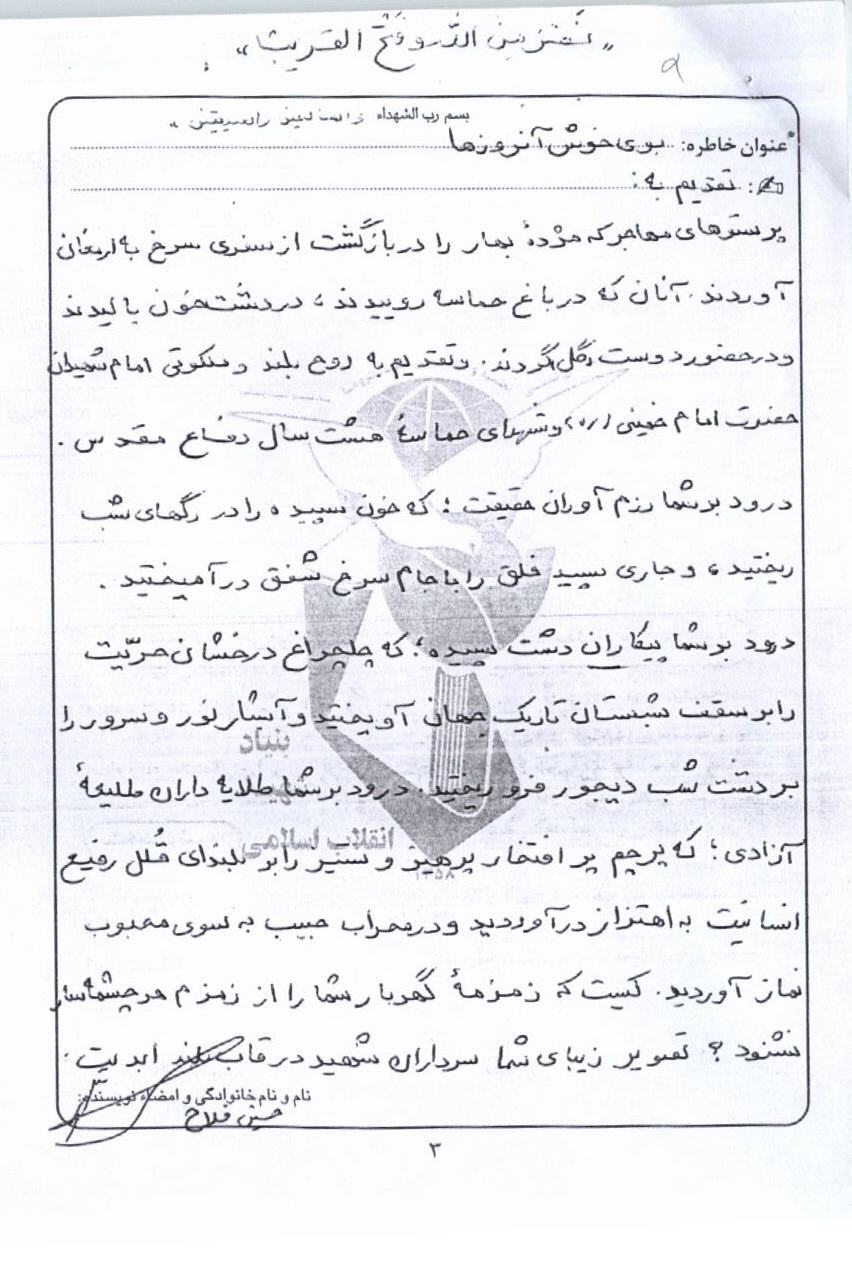 « نَصْرُ مِنَ الله وَ فَتْحٌ القَریبٌ »
۹
بسم رب الشهداء و الصدیقین »
عنوان خاطره: بوی خوش آنروزها
تقدیم به:
پرستوهای مهاجر که مژدهٔ بهار را در بازگشت از سفری سرخ به ارمغان
آوردند. آنان که در باغ حماسه روییدند، در دشت خون بالیدند
و در حضور دوست گل کردند. و تقدیم به روح بلند و ملکوتی امام شهیدان
حضرت امام خمینی (ره) و شهدای حماسهٔ هشت سال دفاع مقدس.
درود بر شما رزم آوران حقیقت؛ که خون سپیده را در رگهای شب
ریختید، و جاری سپید فلق را با جام سرخ شفق در آمیختید.
درود بر شما پیکاران دشت سپیده؛ که چلچراغ درخشان حرّیت
را بر سقف شبستان تاریک جهان آویختید و آبشار نور و سرور را
بر دشت شب دیجور فرو ریختید. درود بر شما طلایه داران طلیعهٔ
آزادی؛ که پرچم پر افتخار پرهیز و ستیز را بر بلندای قُلل رفیع
انسانیّت به اهتزاز در آوردید و در محراب حبیب به سوی محبوب
نماز آوردید. کیست که زمزمهٔ گهربار شما را از زمزم هر چشمه‌سار
نشنود؟ تصویر زیبای شما سرداران شهید در قاب بلند ابدیت،
نام و نام خانوادگی و امضاء نویسنده:
حسین فلاح
۳
بنیاد
انقلاب اسلامی
۱۳۵۸